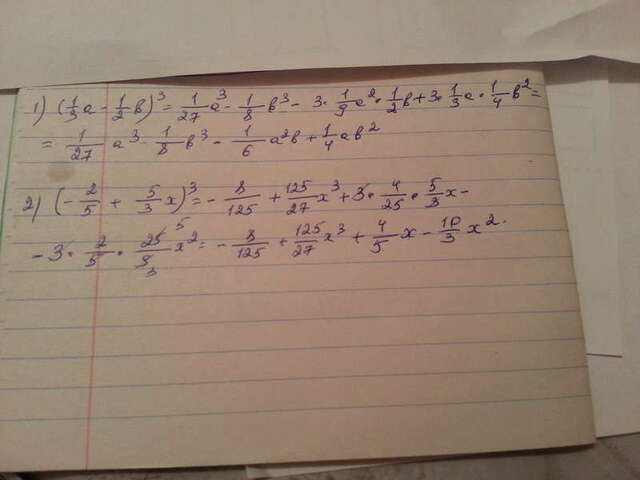 1) (1/3 a - 1/2 в)³ = 1/27 a³ - 1/8 в³ - 3 · 1/9 a² · 1/2 в + 3 · 1/3 a · 1/4 в² =
= 1/27 a³ - 1/8 в³ - 1/6 a²в + 1/4 aв²
2) (- 2/5 + 5/3 x)³ = - 8/125 + 125/27 x³ + 3 · 4/25 · 5/3 x -
- 3 · 2/5 · 25/9 x² = - 8/125 + 125/27 x³ + 4/5 x - 10/3 x².